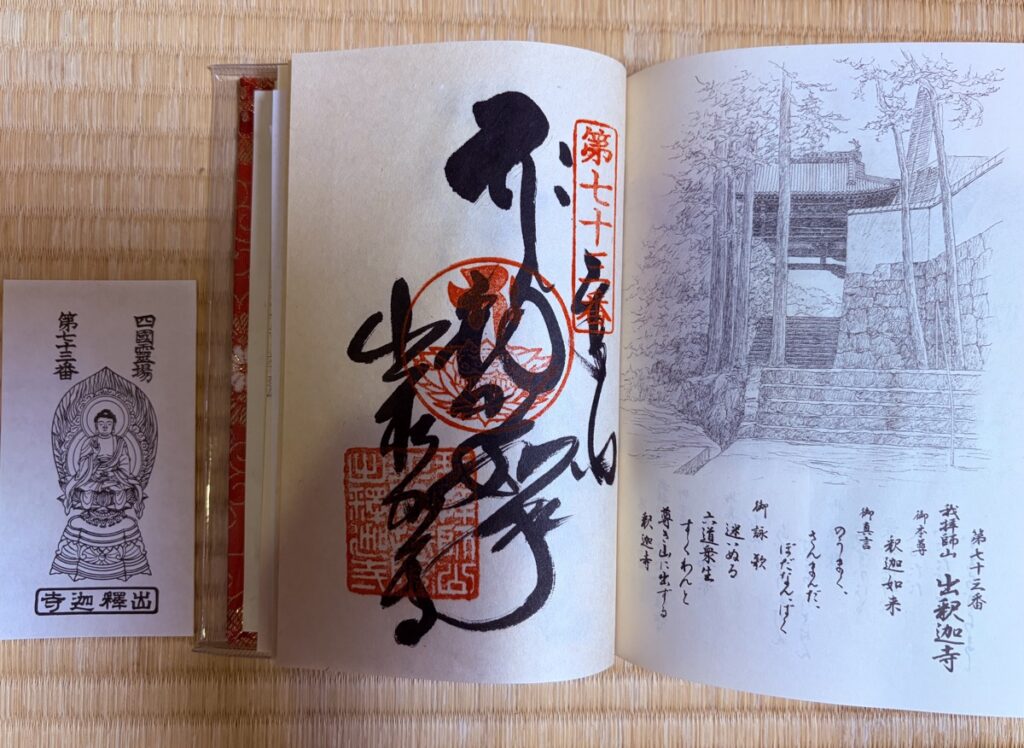 第七十三番
我拝師山 出釈迦寺
御本尊
釈迦如来
御真言
のうまく、
さんまんだ、
ぼだなん、ばく
御詠歌
迷いぬる
六道衆生
すくわんと
尊き山に出する
釈迦寺
第七十三番
出釈迦寺
四國靈場
第七十三番
出釋迦寺